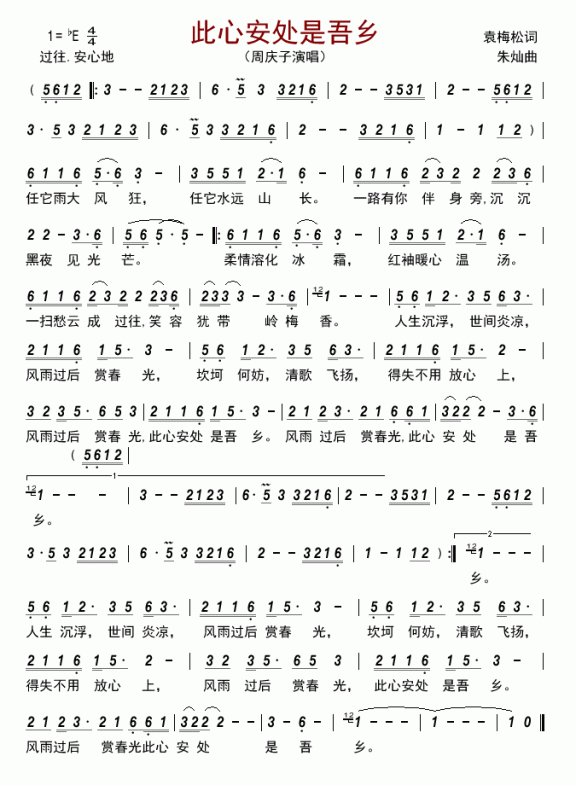 此心安处是吾乡
1=♭E 4/4
袁梅松词
过往.安心地
（周庆子演唱）
朱灿曲
( 5 6 1 2 ‖: 3 - - 2 1 2 3 | 6 · 5 3 3 2 1 6 | 2 - - 3 5 3 1 | 2 - - 5 6 1 2 |
3 · 5 3 2 1 2 3 | 6 · 5 3 3 2 1 6 | 2 - - 3 2 1 6 | 1 - 1 1 2 ) |
6 1 1 6 5 · 6 3 - | 3 5 5 1 2 · 1 6 - | 6 1 1 6 2 3 2 2 2 3 6 |
任它雨大 风 狂， 任它水远 山 长。 一路有你 伴 身 旁,沉 沉
2 2 - 3 · 6 | 5 6 5 · 5 - ‖: 6 1 1 6 5 · 6 3 - | 3 5 5 1 2 · 1 6 - |
黑夜 见 光 芒。 柔情溶化 冰 霜， 红袖暖心 温 汤。
6 1 1 6 2 3 2 2 2 3 6 | 2 3 3 3 - 3 · 6 | 12 1 - - - | 5 6 1 2 · 3 5 6 3 · |
一扫愁云 成 过往,笑 容 犹 带 岭 梅 香。 人生沉浮， 世间炎凉，
2 1 1 6 1 5 · 3 - | 5 6 1 2 · 3 5 6 3 · | 2 1 1 6 1 5 · 2 - |
风雨过后 赏春 光， 坎坷 何妨，清歌 飞扬， 得失不用 放心 上，
3 2 3 5 · 6 5 3 | 2 1 1 6 1 5 · 3 - | 2 1 2 3 · 2 1 6 6 1 | 3 2 2 2 - 3 · 6 |
风雨过后 赏春光,此心安处 是吾 乡。风雨 过后 赏春光,此心 安 处 是 吾
( 5 6 1 2 |
1
12 1 - - - | 3 - - 2 1 2 3 | 6 · 5 3 3 2 1 6 | 2 - - 3 5 3 1 | 2 - - 5 6 1 2 |
乡。
2
3 · 5 3 2 1 2 3 | 6 · 5 3 3 2 1 6 | 2 - - 3 2 1 6 | 1 - 1 1 2 ) :‖ 12 1 - - - |
乡。
5 6 1 2 · 3 5 6 3 · | 2 1 1 6 1 5 · 3 - | 5 6 1 2 · 3 5 6 3 · |
人生 沉浮， 世间 炎凉， 风雨过后 赏春 光， 坎坷 何妨，清歌 飞扬，
2 1 1 6 1 5 · 2 - | 3 2 3 5 · 6 5 3 | 2 1 1 6 1 5 · 3 - |
得失不用 放心 上， 风雨 过后 赏春 光， 此心安处 是吾 乡。
2 1 2 3 · 2 1 6 6 1 | 3 2 2 2 - - | 3 - 6 - | 12 1 - - - | 1 - - - | 1 0 ‖
风雨过后 赏春光此心 安 处 是 吾 乡。